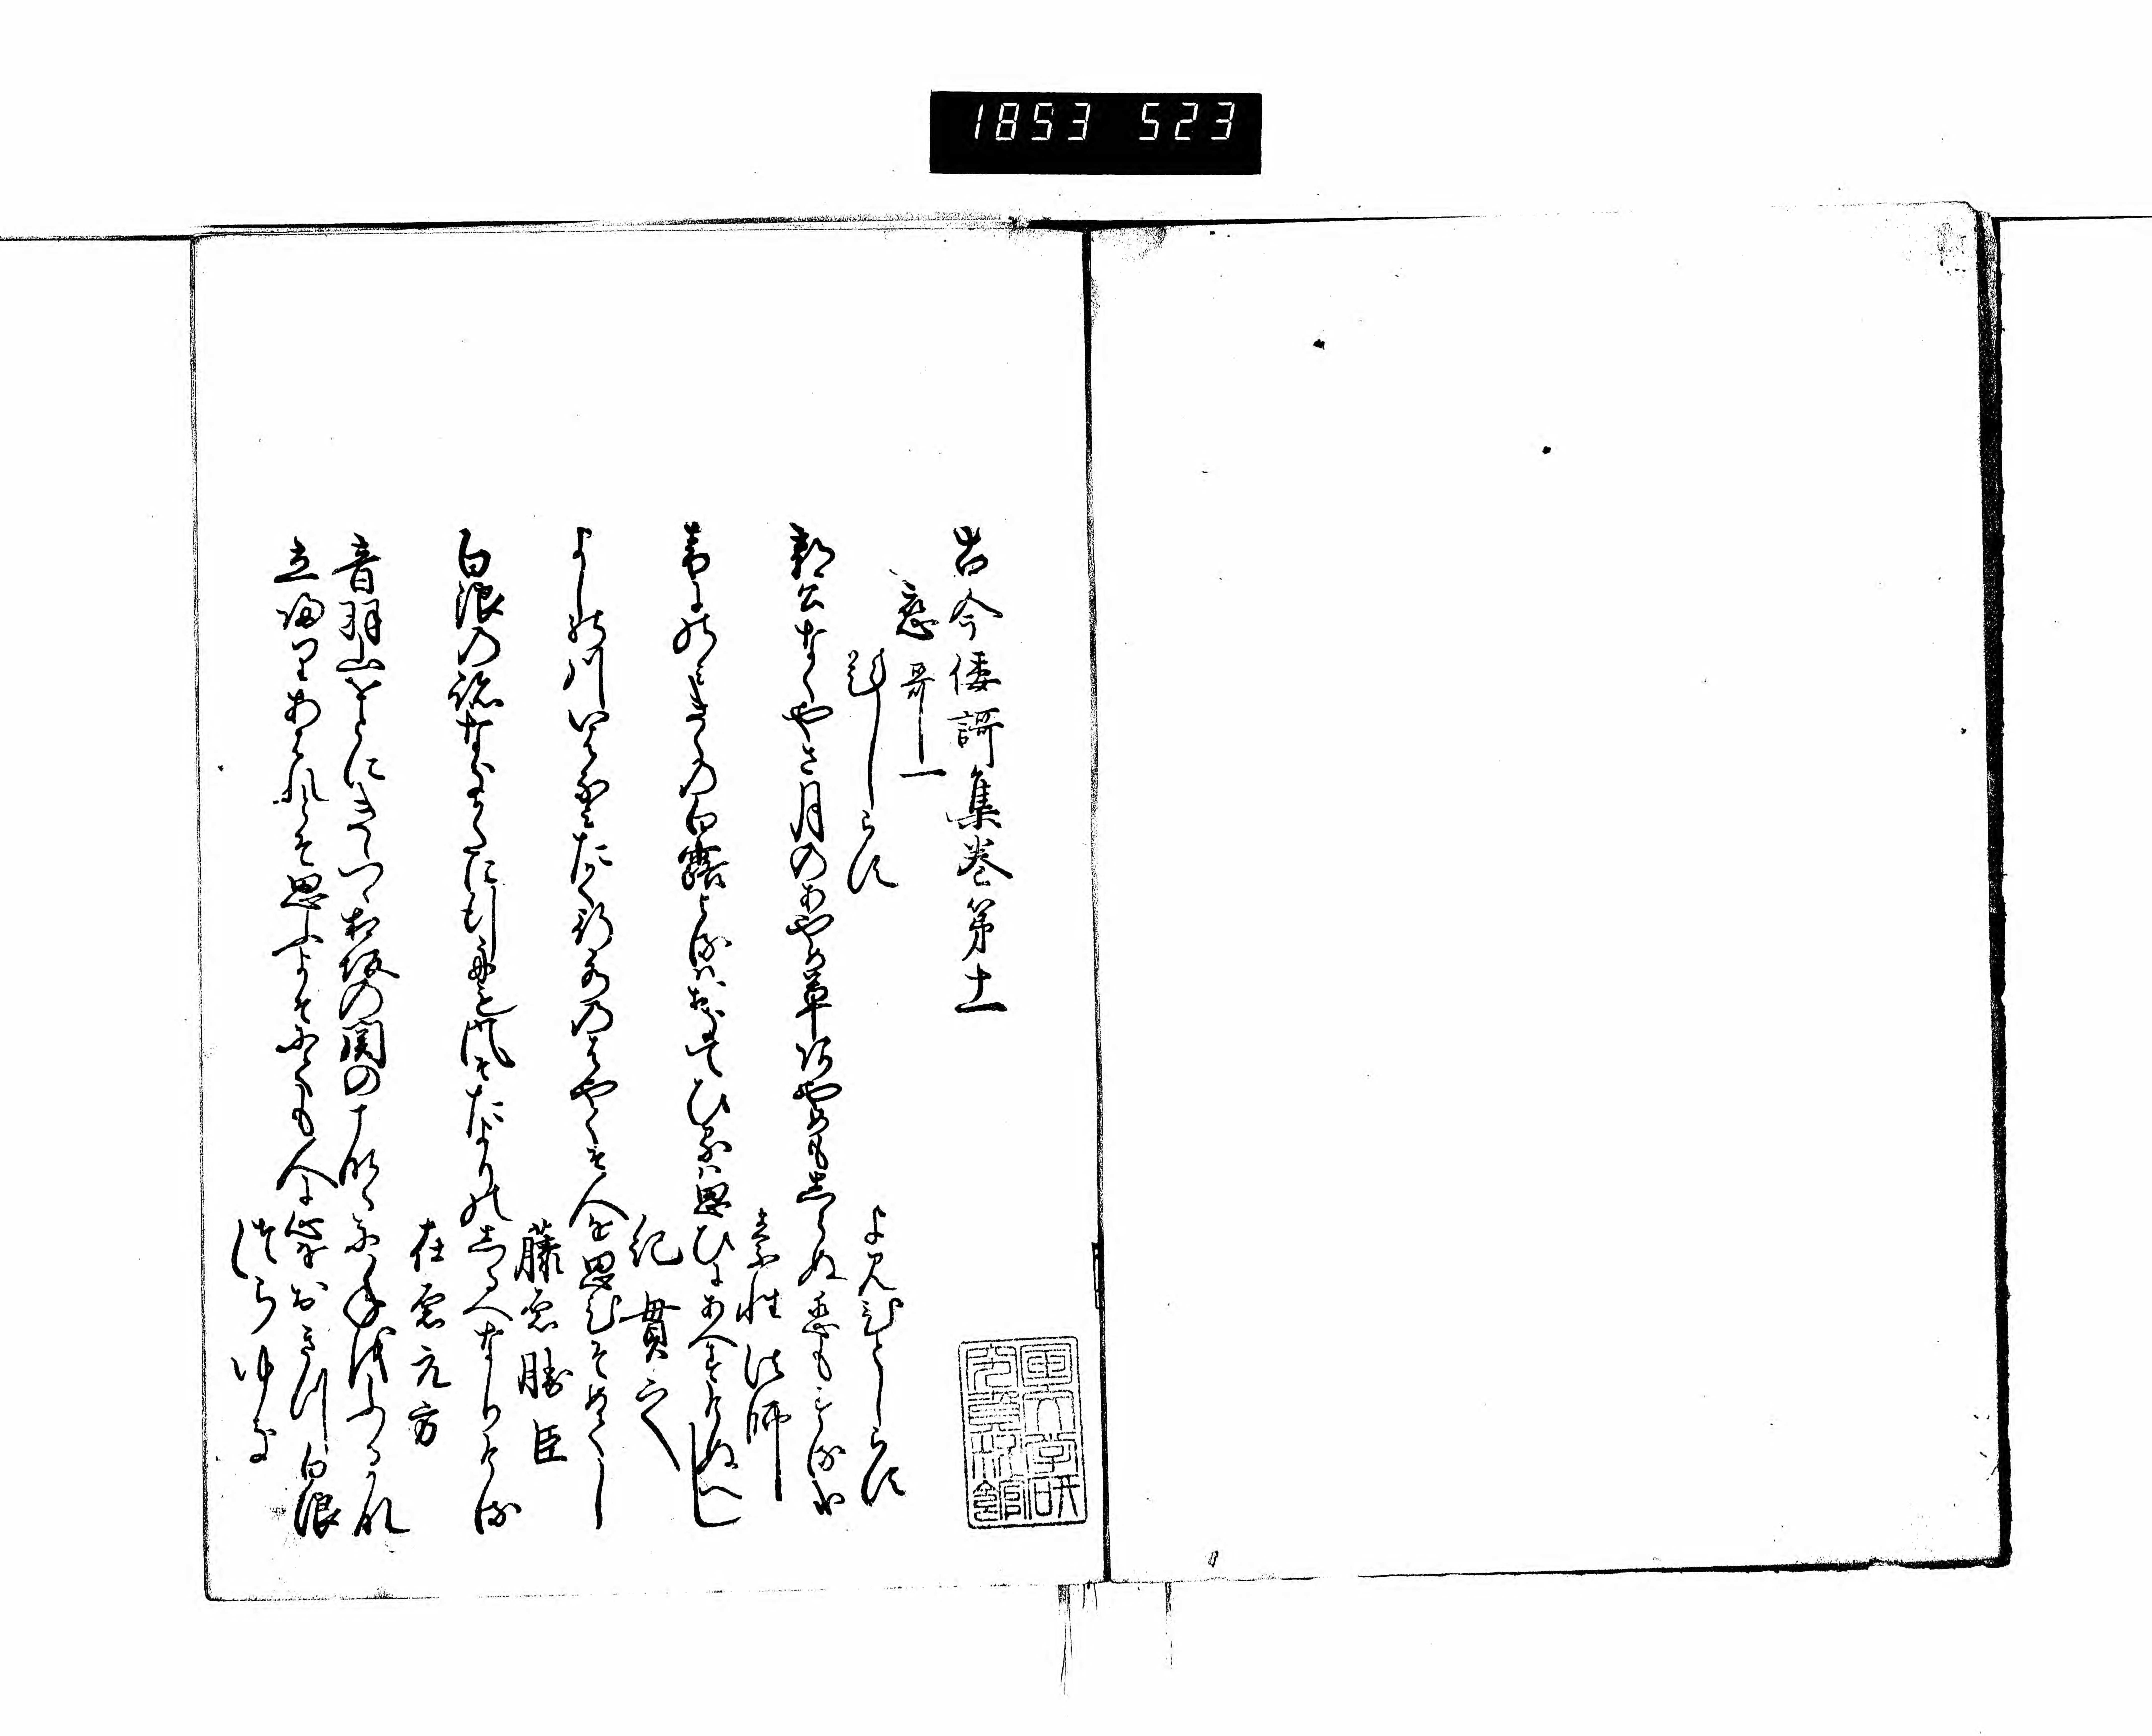 1853 523
古今倭謌集巻第十一
恋哥一
題しらす
よみ人しらす
郭公なくやさ月のあやめ草あやめも志らぬ恋もする哉
素性法師
音にのみきくの白露よるはおきてひるは思ひにあへすけぬへし
紀貫之
よしの川いはなみたかく行水のはやくそ人を思ひそめてし
藤原勝臣
白浪の跡なきかたに行舟も風そたよりのしるへなりける
在原元方
音羽山をとにきゝつゝ相坂の関のこなたに年をふるかな
立帰りあはれとそ思ふよそにても人に心をおきつ白浪
つらゆき